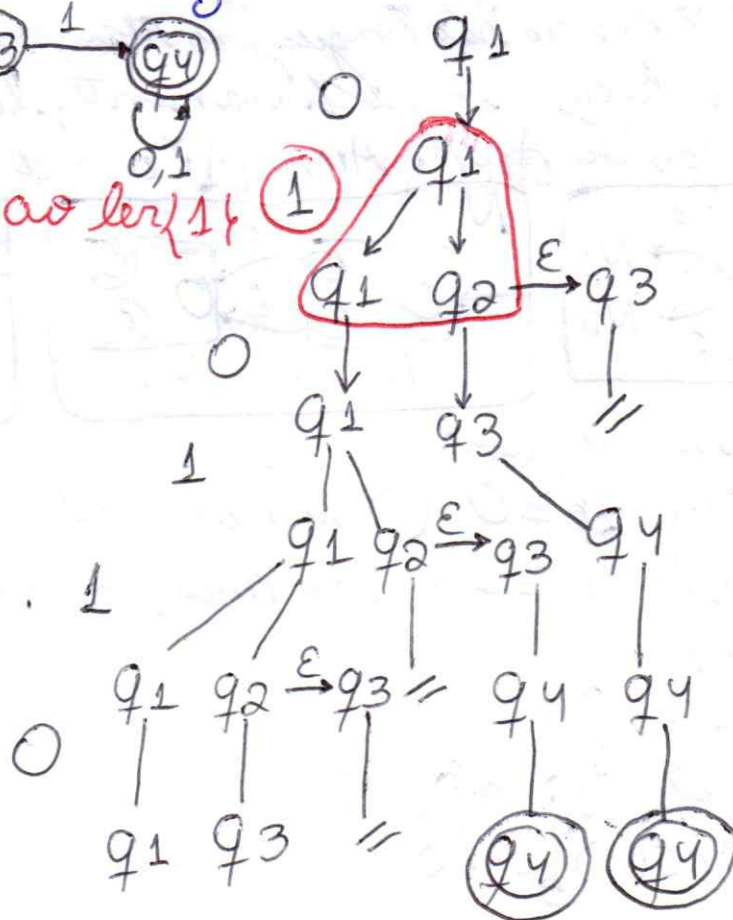 1
3 q4 q1
0
0,1 q1
ao ler{1} 1
q1 q2 ε q3
0
q1 q3 //
1
q1 q2 ε q3 q4
. 1
q1 q2 ε q3 // q4 q4
0
q1 q3 // q4 q4